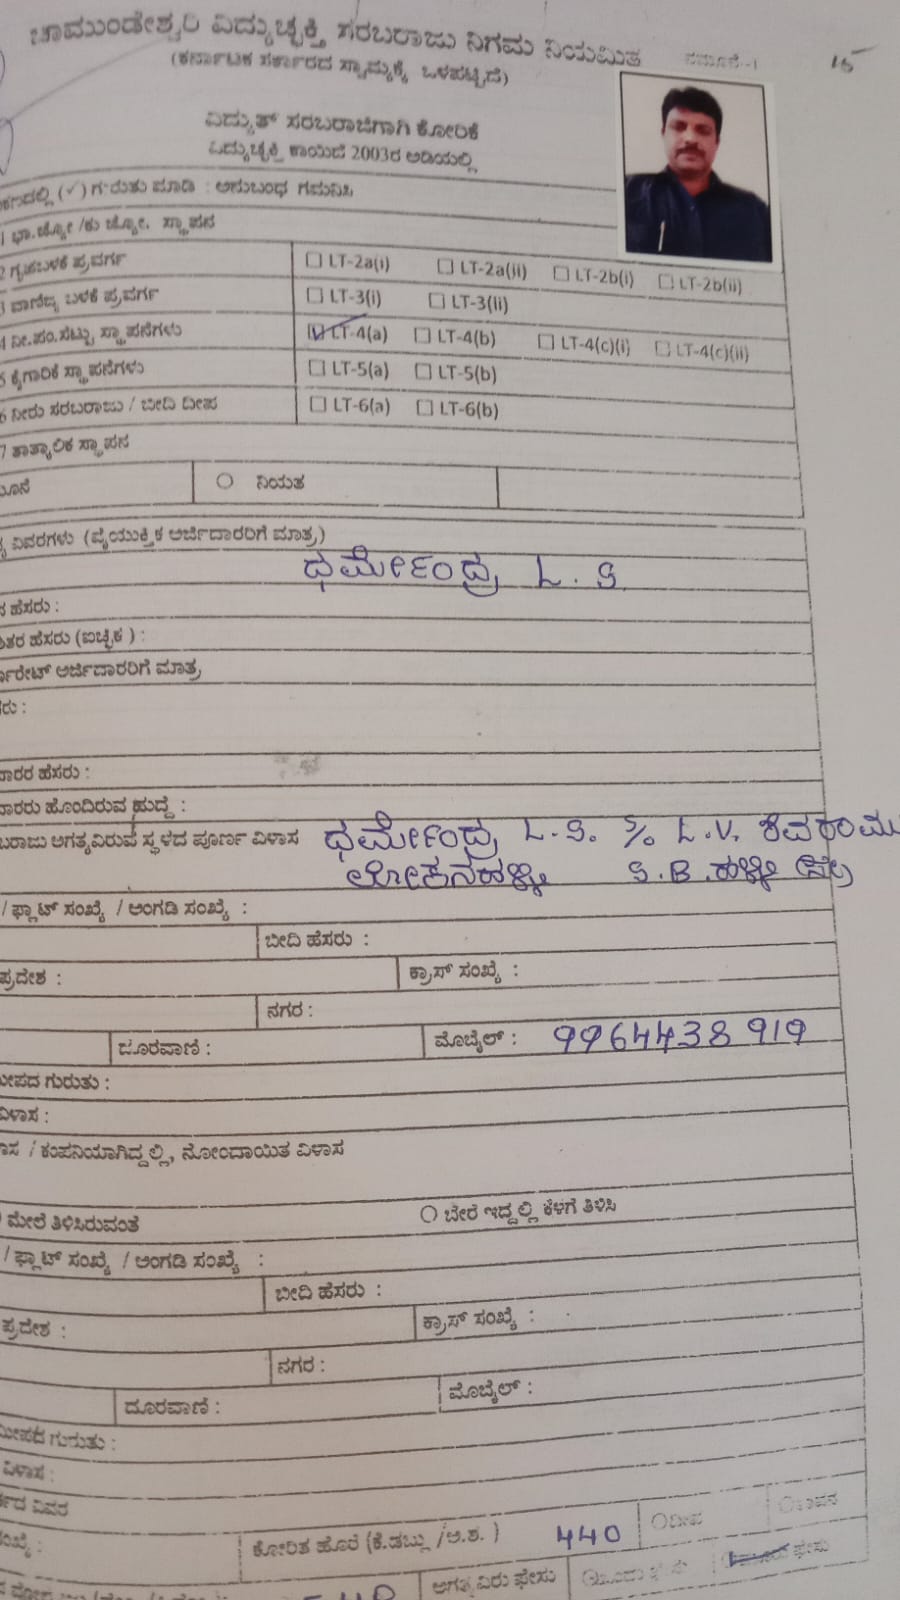 ಚಾಮುಂಡೇಶ್ವರಿ ವಿದ್ಯುಚ್ಛಕ್ತಿ ಸರಬರಾಜು ನಿಗಮ ನಿಯಮಿತ ನಮೂನೆ-1 15
(ಕರ್ನಾಟಕ ಸರ್ಕಾರದ ಸ್ವಾಮ್ಯಕ್ಕೆ ಒಳಪಟ್ಟಿದೆ)
ವಿದ್ಯುತ್ ಸರಬರಾಜಿಗಾಗಿ ಕೋರಿಕೆ
ವಿದ್ಯುಚ್ಛಕ್ತಿ ಕಾಯಿದೆ 2003ರ ಅಡಿಯಲ್ಲಿ
(✓) ಗುರುತು ಮಾಡಿ : ಅನುಬಂಧ ಗಮನಿಸಿ
1 ಭಾ.ಜ್ಯೋ/ಕು ಜ್ಯೋ. ಸ್ಥಾಪನ
2 ಗೃಹಬಳಕೆ ಪ್ರವರ್ಗ ☐ LT-2a(i) ☐ LT-2a(ii) ☐ LT-2b(i) ☐ LT-2b(ii)
3 ವಾಣಿಜ್ಯ ಬಳಕೆ ಪ್ರವರ್ಗ ☐ LT-3(i) ☐ LT-3(ii)
4 ನೀ.ಪಂ.ಸೆಟ್ಟು ಸ್ಥಾಪನೆಗಳು ☑ LT-4(a) ☐ LT-4(b) ☐ LT-4(c)(i) ☐ LT-4(c)(ii)
5 ಕೈಗಾರಿಕೆ ಸ್ಥಾಪನೆಗಳು ☐ LT-5(a) ☐ LT-5(b)
6 ನೀರು ಸರಬರಾಜು / ಬೀದಿ ದೀಪ ☐ LT-6(a) ☐ LT-6(b)
7 ತಾತ್ಕಾಲಿಕ ಸ್ಥಾಪನ
○ ನಿಯತ
ವಿವರಗಳು (ವೈಯುಕ್ತಿಕ ಅರ್ಜಿದಾರರಿಗೆ ಮಾತ್ರ)
ಧರ್ಮೇಂದ್ರ L. S.
ಹೆಸರು :
ಹೆಸರು (ಐಚ್ಛಿಕ ) :
ಅರ್ಜಿದಾರರಿಗೆ ಮಾತ್ರ
ಹೆಸರು :
ಹೊಂದಿರುವ ಹುದ್ದೆ :
ಅಗತ್ಯವಿರುವ ಸ್ಥಳದ ಪೂರ್ಣ ವಿಳಾಸ ಧರ್ಮೇಂದ್ರ L. S. S/o L.V.
S.B.ಹಳ್ಳಿ
/ ಫ್ಲಾಟ್ ಸಂಖ್ಯೆ / ಅಂಗಡಿ ಸಂಖ್ಯೆ :
ಬೀದಿ ಹೆಸರು :
ಪ್ರದೇಶ : ಕ್ರಾಸ್ ಸಂಖ್ಯೆ :
ನಗರ :
ದೂರವಾಣಿ : ಮೊಬೈಲ್ : 9964438919
ಗುರುತು :
ವಿಳಾಸ :
/ ಕಂಪನಿಯಾಗಿದ್ದಲ್ಲಿ, ನೋಂದಾಯಿತ ವಿಳಾಸ
ಮೇಲೆ ತಿಳಿಸಿರುವಂತೆ ○ ಬೇರೆ ಇದ್ದಲ್ಲಿ ಕೆಳಗೆ ತಿಳಿಸಿ
/ ಫ್ಲಾಟ್ ಸಂಖ್ಯೆ / ಅಂಗಡಿ ಸಂಖ್ಯೆ :
ಬೀದಿ ಹೆಸರು :
ಪ್ರದೇಶ : ಕ್ರಾಸ್ ಸಂಖ್ಯೆ :
ನಗರ :
ದೂರವಾಣಿ : ಮೊಬೈಲ್ :
ಗುರುತು :
ವಿಳಾಸ :
ವಿವರ
ಕೋರಿತ ಹೊರೆ (ಕೆ.ಡಬ್ಲು /ಅ.ಶ. ) 440 ○ದೀಪ
ಅಗತ್ಯವಿರು ಫೇಸು